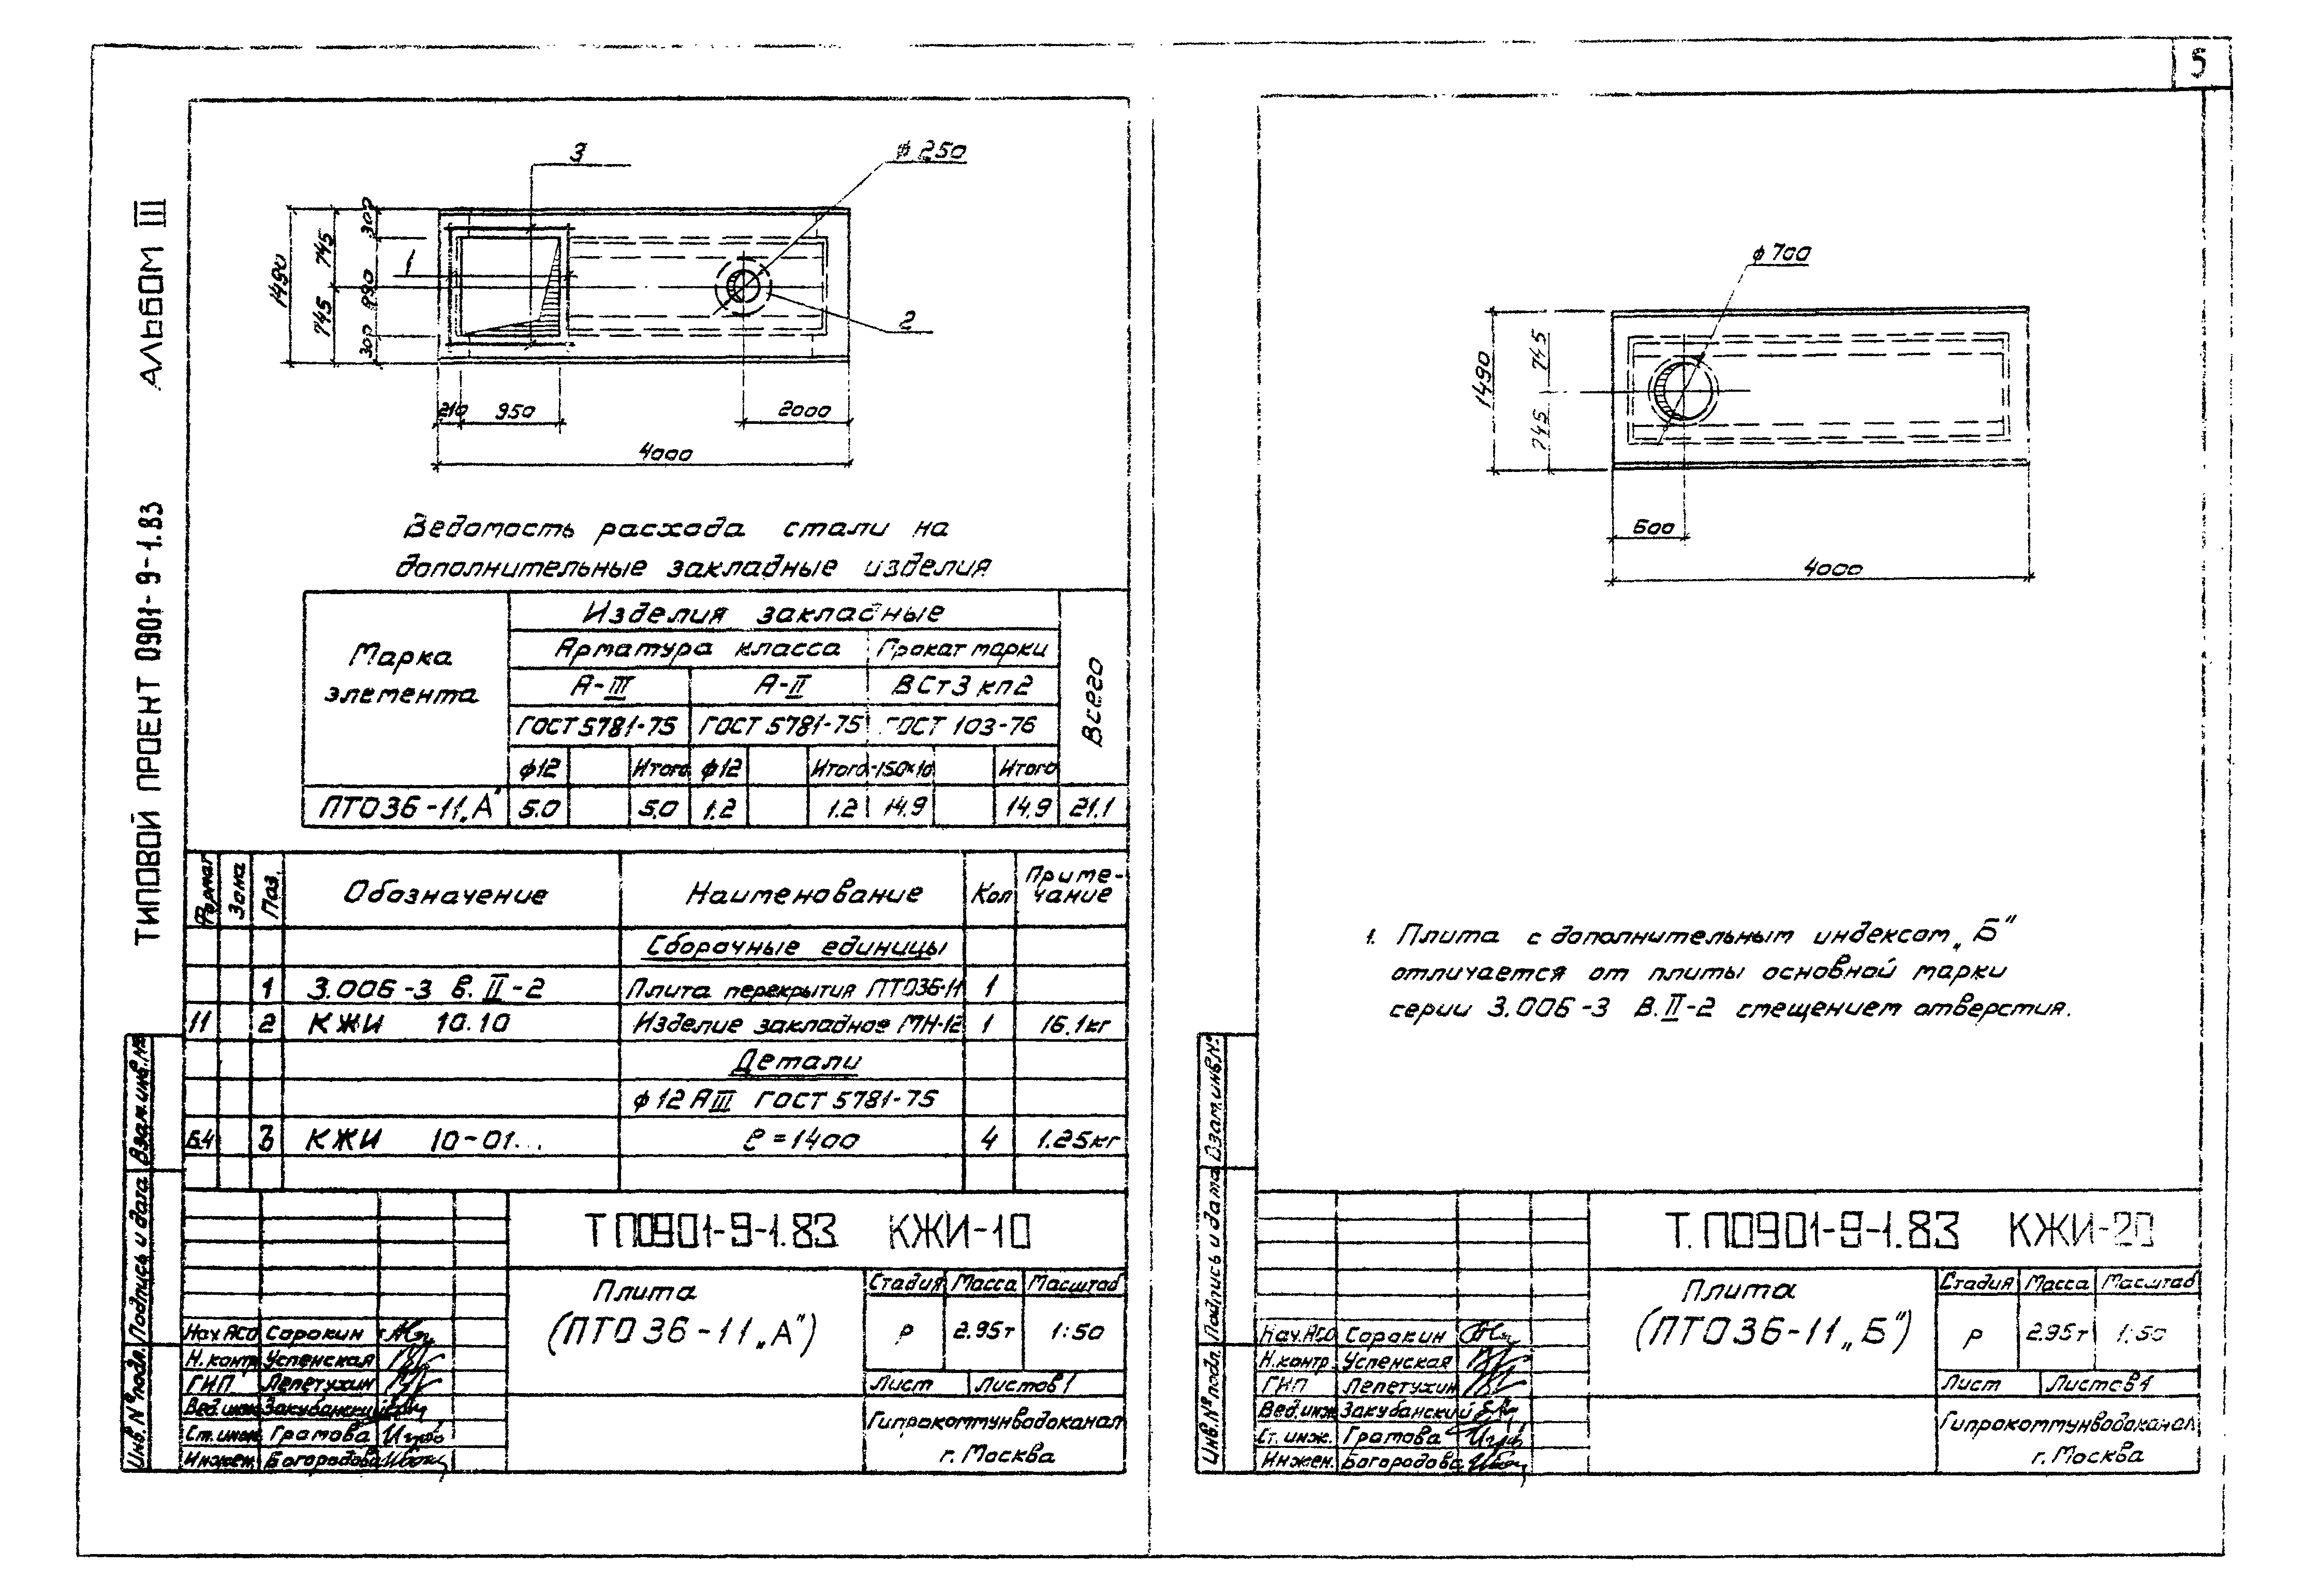 5
АЛЬБОМ III
ТИПОВОЙ ПРОЕКТ 0901-9-1.83
3
ф 250
1
2
1490
745
745
300
890
300
210
950
2000
4000
Ведомость расхода стали на
дополнительные закладные изделия
Марка элемента
Изделия закладные
Всего
Арматура класса
Прокат марки
А-III
А-II
ВСт3кп2
ГОСТ 5781-75
ГОСТ 5781-75
ГОСТ 103-76
ф12
Итого
ф12
Итого
-150×10
Итого
ПТО36-11„А"
5.0
5,0
1.2
1.2
14.9
14.9
21.1
Формат
Зона
Поз.
Обозначение
Наименование
Кол
Приме-
чание
Сборочные единицы
1 3.006-3 в. II-2 Плита перекрытия ПТО36-11 1
11 2 КЖИ 10.10 Изделие закладное МН-12 1 16.1кг
Детали
ф12АIII ГОСТ 5781-75
Б.4 3 КЖИ 10-01... ℓ=1400 4 1.25кг
Взам.инв.№
Подпись и дата
Инв.№подл.
ТП0901-9-1.83 КЖИ-10
Плита
(ПТО36-11„А")
Стадия
Масса
Масштаб
Р
2.95т
1:50
Лист
Листов 1
Гипрокоммунводоканал
г. Москва
Нач.АСО Сорокин
Н.контр Успенская
ГИП Лепетухин
Вед.инж Закубанский
Ст.инж. Громова
Инжен. Богородова
ф700
1490
745
745
600
4000
1. Плита с дополнительным индексом „Б"
отличается от плиты основной марки
серии 3.006-3 В.II-2 смещением отверстия.
Взам.инв.№
Подпись и дата
Инв.№подл.
Т.П0901-9-1.83 КЖИ-20
Плита
(ПТО36-11„Б")
Стадия
Масса
Масштаб
Р
2.95т
1:50
Лист
Листов 1
Гипрокоммунводоканал
г. Москва
Нач.АСО Сорокин
Н.контр. Успенская
ГИП Лепетухин
Вед.инж. Закубанский
Ст.инж. Громова
Инжен. Богородова